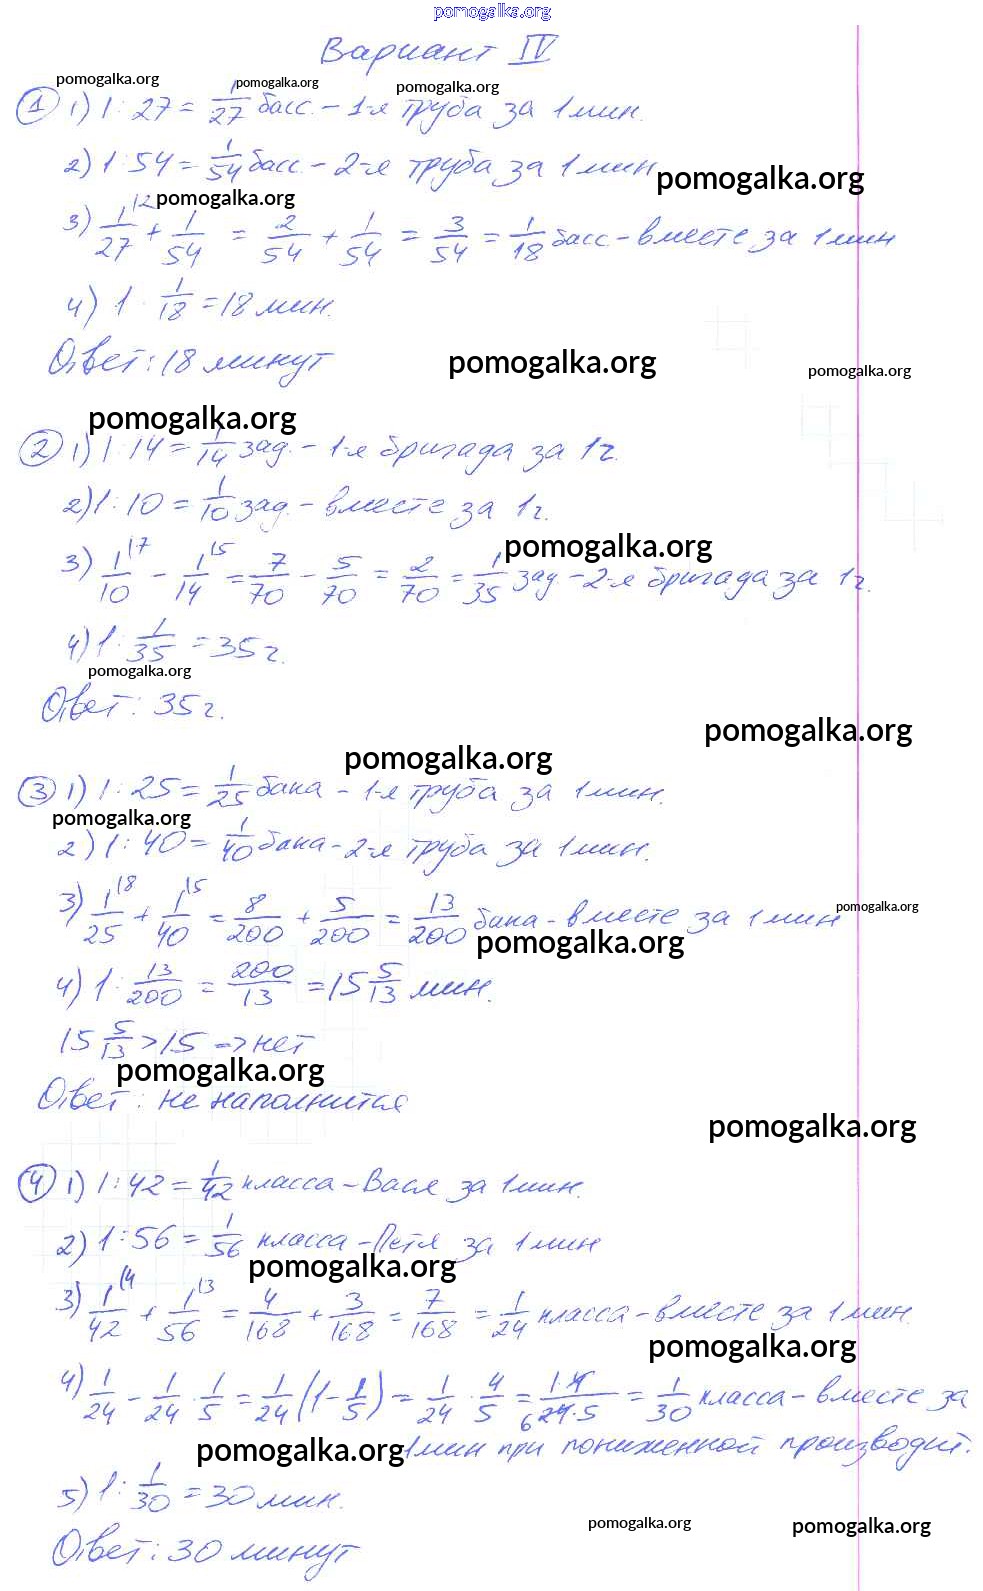 pomogalka.org
Вариант IV
pomogalka.org pomogalka.org pomogalka.org
① 1) 1 : 27 = 1/27 басс. - 1-я труба за 1 мин.
2) 1 : 54 = 1/54 басс. - 2-я труба за 1 мин
pomogalka.org
pomogalka.org
3) 1/27 \2 + 1/54 = 2/54 + 1/54 = 3/54 = 1/18 басс - вместе за 1 мин
4) 1 : 1/18 = 18 мин.
Ответ: 18 минут
pomogalka.org
pomogalka.org
pomogalka.org
② 1) 1 : 14 = 1/14 зад. - 1-я бригада за 1 ч.
2) 1 : 10 = 1/10 зад. - вместе за 1 ч.
pomogalka.org
3) 1/10 \7 - 1/14 \5 = 7/70 - 5/70 = 2/70 = 1/35 зад - 2-я бригада за 1 ч.
4) 1 : 1/35 = 35 ч.
pomogalka.org
Ответ: 35 ч.
pomogalka.org
pomogalka.org
③ 1) 1 : 25 = 1/25 бака - 1-я труба за 1 мин.
pomogalka.org
2) 1 : 40 = 1/40 бака - 2-я труба за 1 мин.
3) 1/25 \8 + 1/40 \5 = 8/200 + 5/200 = 13/200 бака - вместе за 1 мин
pomogalka.org
pomogalka.org
4) 1 : 13/200 = 200/13 = 15 5/13 мин.
15 5/13 > 15 => нет
pomogalka.org
Ответ: не наполнится
pomogalka.org
④ 1) 1 : 42 = 1/42 класса - Вася за 1 мин.
2) 1 : 56 = 1/56 класса - Петя за 1 мин
pomogalka.org
3) 1/42 \4 + 1/56 \3 = 4/168 + 3/168 = 7/168 = 1/24 класса - вместе за 1 мин.
pomogalka.org
4) 1/24 - 1/24 · 1/5 = 1/24 (1 - 1/5) = 1/24 · 4/5 = 1·4/24·5 6 = 1/30 класса - вместе за
pomogalka.org 1 мин при пониженной производит.
5) 1 : 1/30 = 30 мин.
pomogalka.org pomogalka.org
Ответ: 30 минут